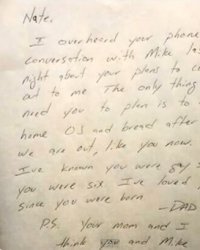 Nate,
I overheard your phone
conversation with Mike las
night about your plans to c
out to me. The only thing
need you to plan is to
home OJ and bread after
we are out, like you now.
I've known you were gay s
you were six I've loved
since you were born
-DAD
P.S. Your mom and I
think you and Mike